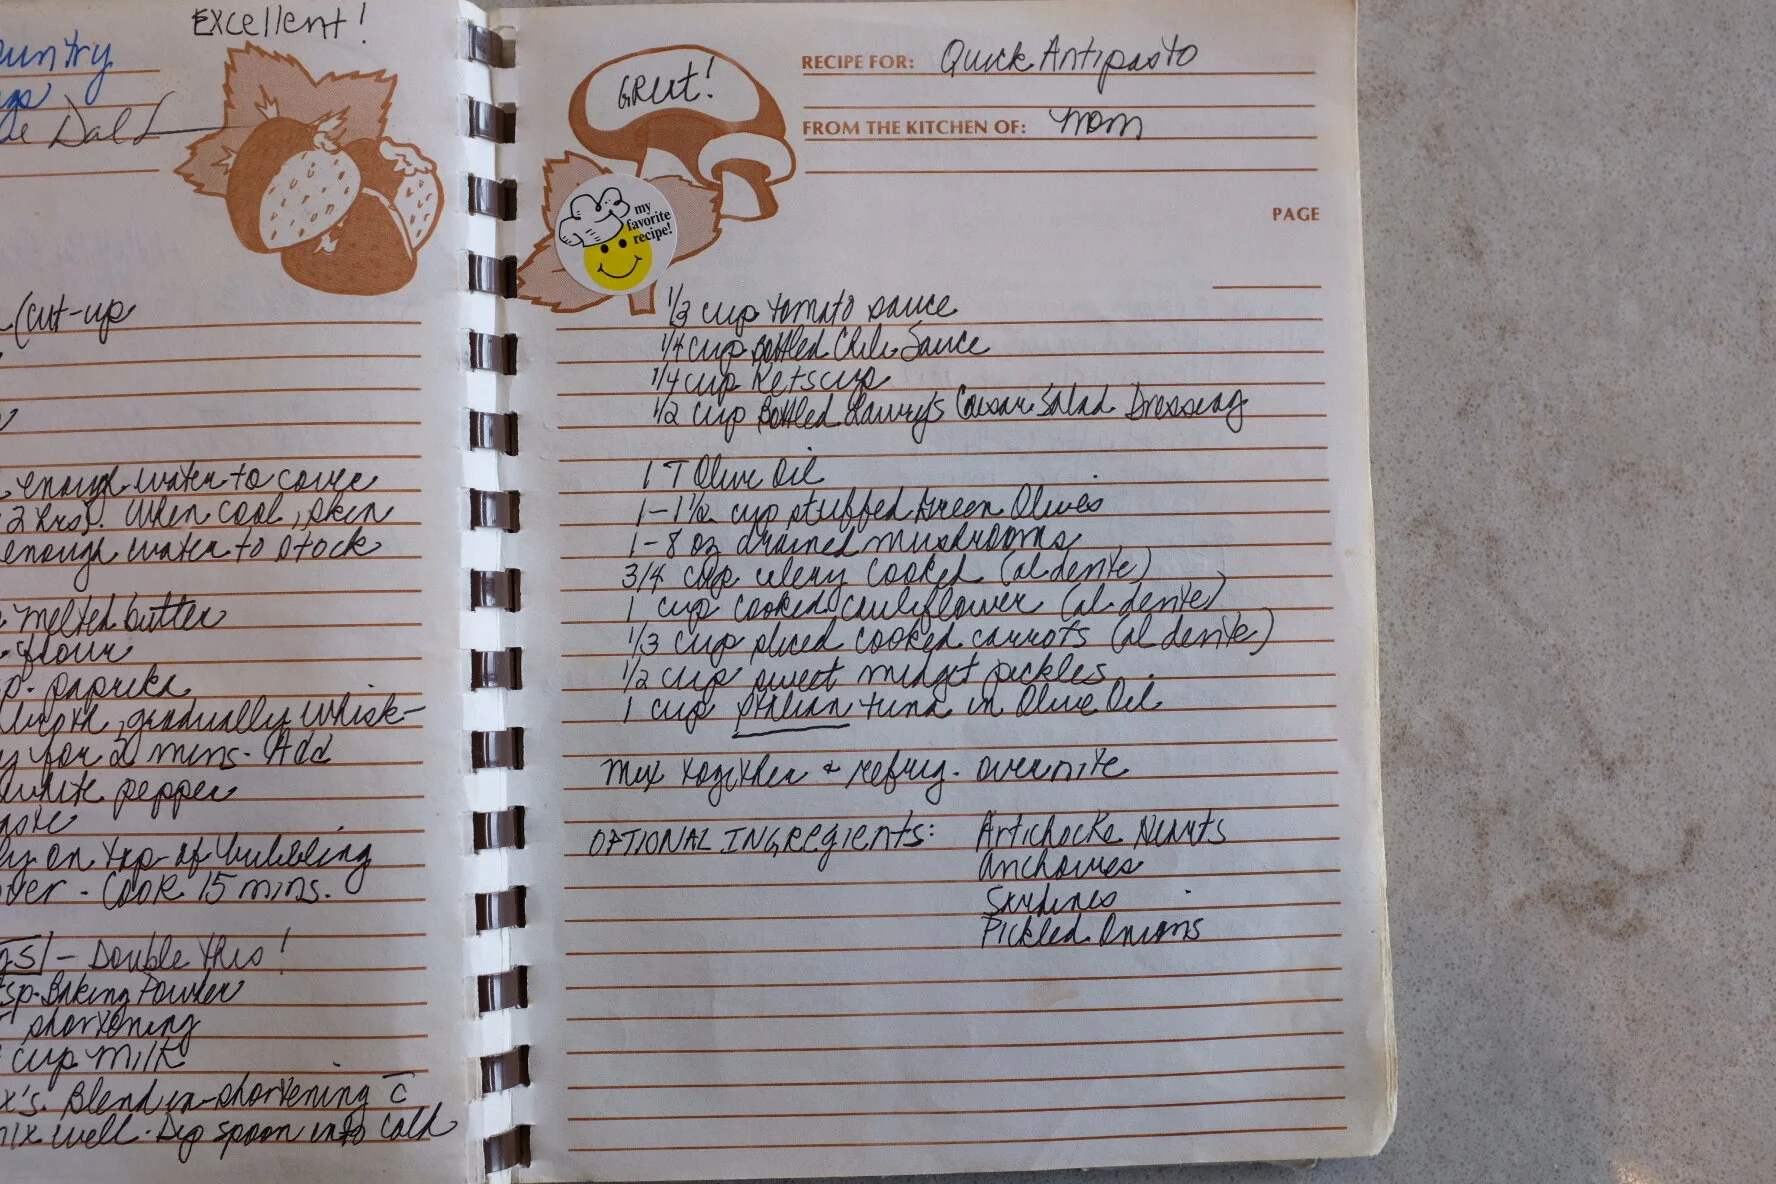 Excellent!
untry
de Dald
(cut-up
enough water to cover
2 hrs. When cool, skin
enough water to stock
melted butter
flour
p. paprika
gradually whisk-
y for 2 mins. Add
white pepper
aste
ly on top of bubbling
over - Cook 15 mins.
gs - Double this!
tsp. Baking Powder
shortening
cup milk
x's. Blend in shortening c̄
mix well. Dip spoon into cold
GREAT!
RECIPE FOR: Quick Antipasto
FROM THE KITCHEN OF: Mom
my
favorite
recipe!
PAGE
1/3 cup tomato sauce
1/4 cup Bottled Chili Sauce
1/4 cup Ketscup
1/2 cup Bottled Lawry's Caesar Salad Dressing
1 T Olive Oil
1-1 1/2 cup stuffed Green Olives
1-8 oz drained mushrooms
3/4 cup celery cooked (al dente)
1 cup cooked cauliflower (al dente)
1/3 cup sliced cooked carrots (al dente)
1/2 cup sweet midget pickles
1 cup Italian tuna in Olive Oil
Mix together + refrig. overnite
OPTIONAL INGREgients: Artichocke Hearts
Anchovies
Sardines
Pickled Onions